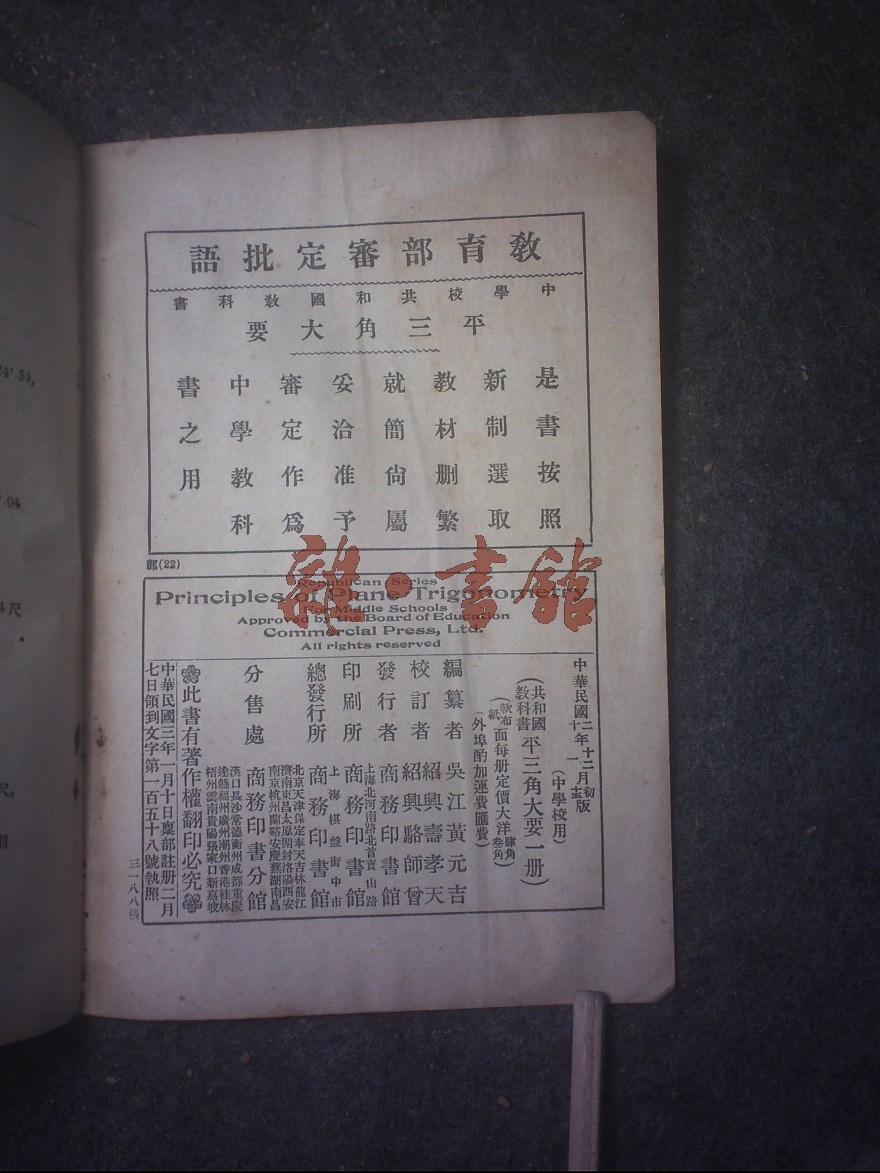 教育部審定批語
中學校共和國教科書
平三角大要
是書按照
新制選取
教材刪繁
就簡尙屬
妥洽准予
審定作爲
中學教科
書之用
部(22)
Republican Series
Principles of Plane Trigonometry
For Middle Schools
Approved by the Board of Education
Commercial Press, Ltd.
All rights reserved
中華民國二年十二月初版
十一年
(中學校用)
(共和國教科書平三角大要一册)
(軟布面每册定價大洋肆角)
(紙面每册定價大洋叁角)
(外埠酌加運費匯費)
編纂者 吳江黃元吉
校訂者 紹興壽孝天
紹興駱師曾
發行者 商務印書館
印刷所 上海北河南路北首寶山路
商務印書館
總發行所 上海棋盤街中市
商務印書館
分售處 北京天津保定奉天吉林龍江
濟南東昌太原開封洛陽西安
南京杭州蘭谿安慶蕪湖南昌
商務印書分館
漢口長沙常德衡州成都重慶
達縣福州廣州潮州香港桂林
梧州雲南貴陽張家口新嘉坡
此書有著作權翻印必究
中華民國三年一月十日稟部註册二月
七日領到文字第一百五十八號執照
三一八八
雜·書館
24'.51,
.04
尺
尺,